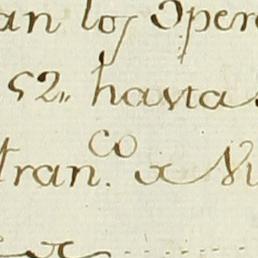 an los Oper
52,, hasta
fran.co x Nu